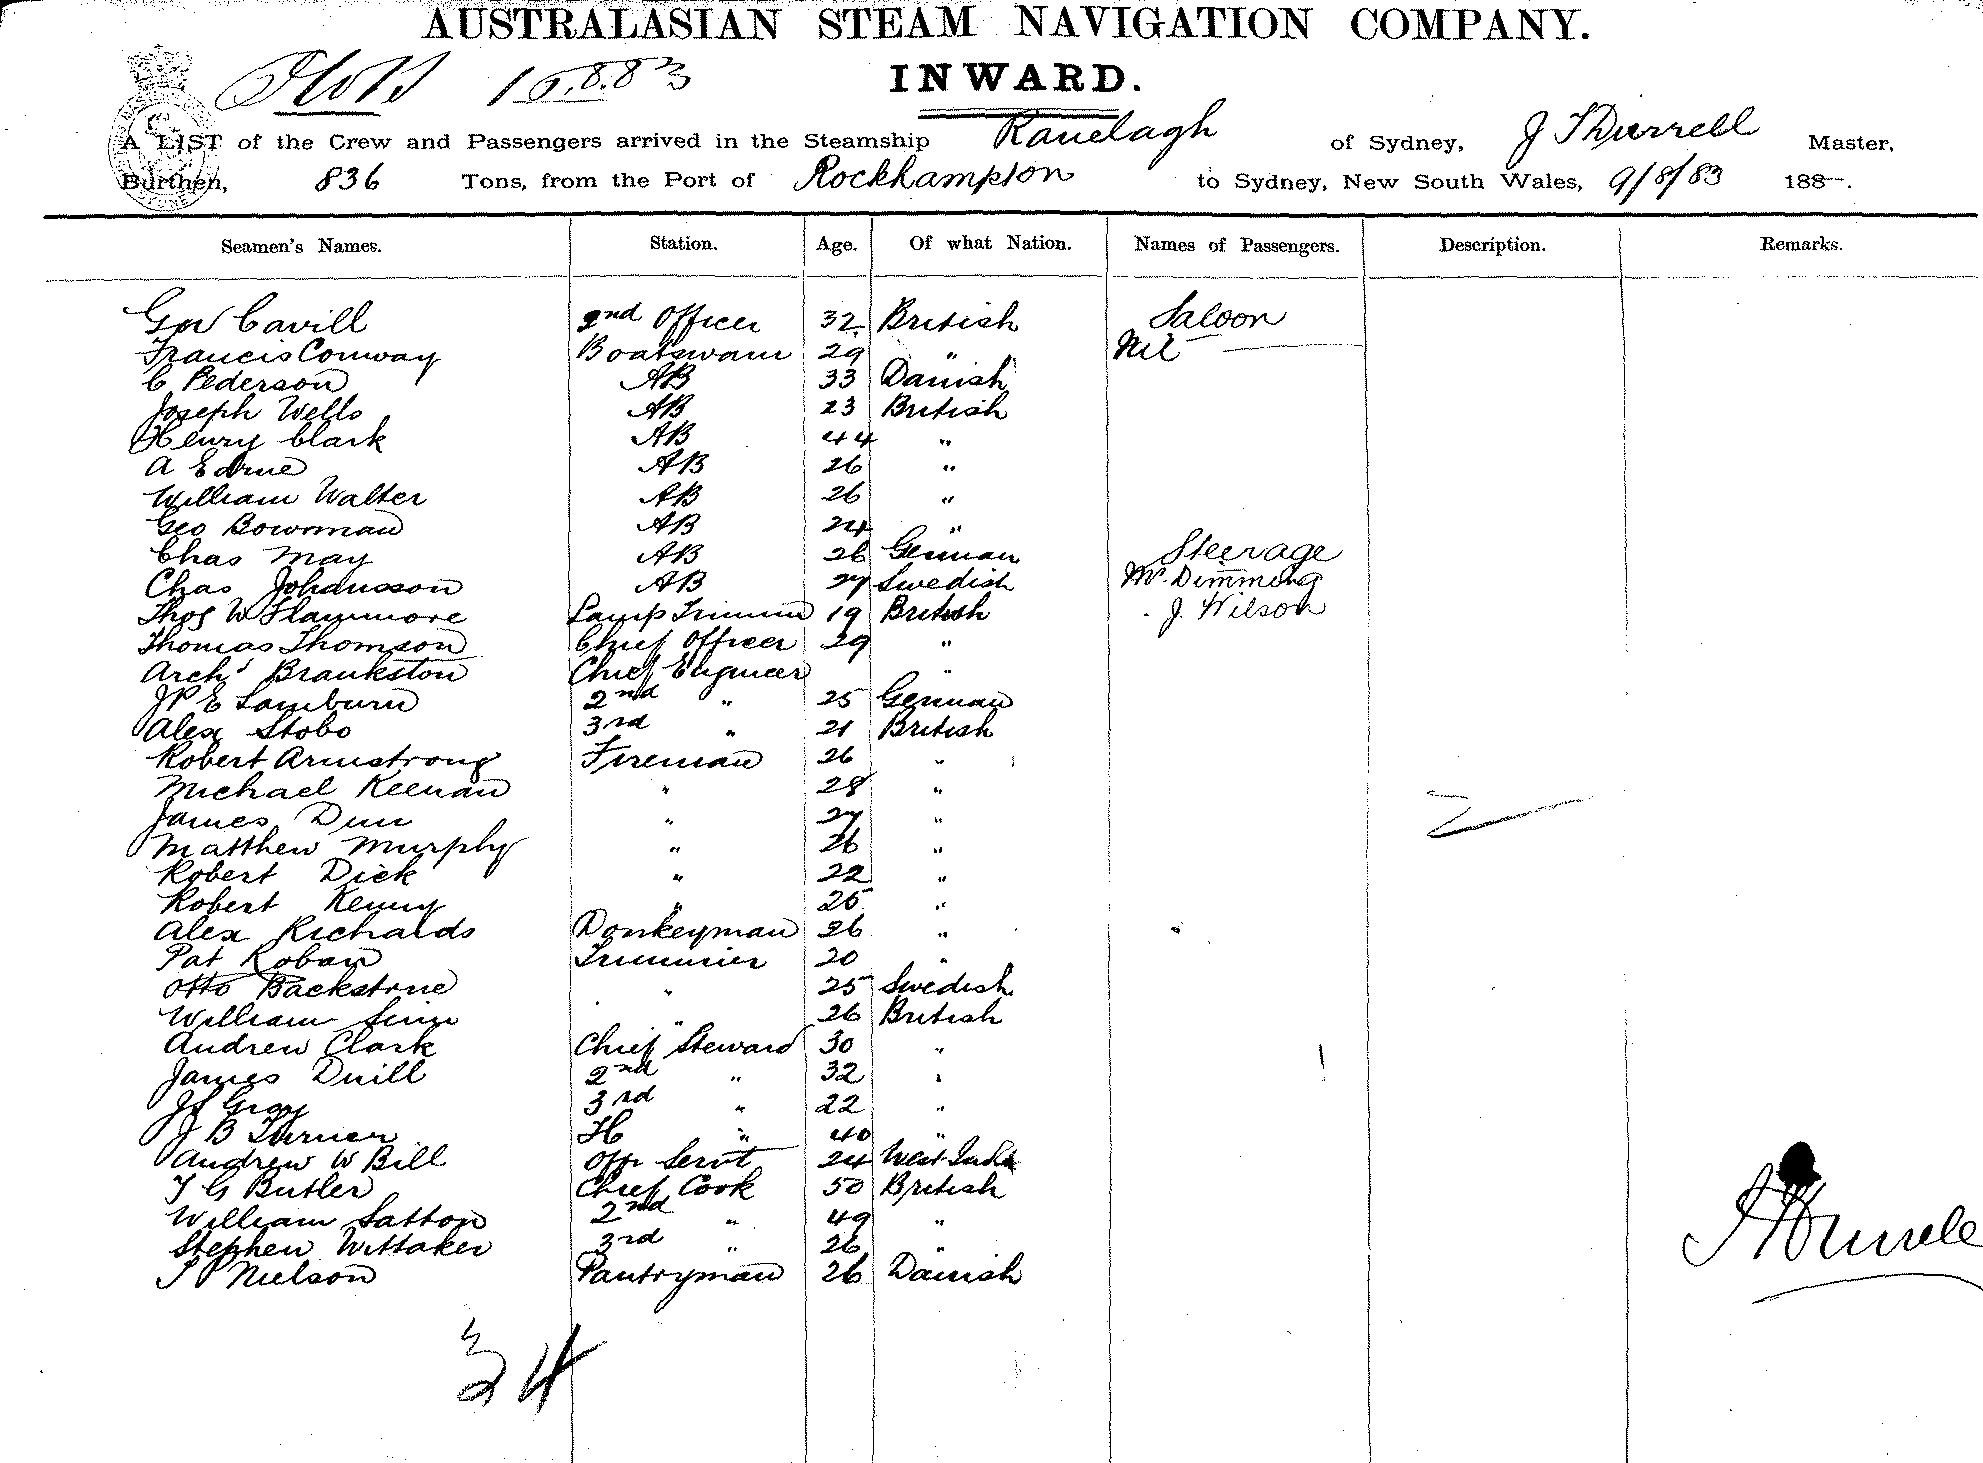 AUSTRALASIAN STEAM NAVIGATION COMPANY.
15.8.83 INWARD.
A LIST of the Crew and Passengers arrived in the Steamship Ranelagh of Sydney, J T Durrell Master,
Burthen, 836 Tons, from the Port of Rockhampton to Sydney, New South Wales, 9/8/83 188-.
Seamen's Names. Station. Age. Of what Nation. Names of Passengers. Description. Remarks.
Cavill 2nd Officer 32 British Saloon
Francis Conway Boatswain 29 " Nil
C Pederson AB 33 Danish
Joseph Wells AB 23 British
Henry Clark AB 44 "
A AB 26 "
William Walter AB 26 "
Geo Bowman AB 24 "
Chas May AB 26 German Steerage
Chas Johansson AB 27 Swedish Mr. Dimming
Thos W Flammore Lamp Trimmer 19 British J. Wilson
Thomas Thomson Chief Officer 29 "
Archd Brankston Chief Engineer "
J P E Lamburn 2nd " 25 German
Alex Stobo 3rd " 21 British
Robert Armstrong Fireman 26 "
Michael Keenan " 28 "
James Dun " 27 "
Matthew Murphy " 26 "
Robert Dick " 22 "
Robert Kenny " 25 "
Alex Richards Donkeyman 26 "
Pat Roban Trimmer 20 "
Otto Backstrne " 25 Swedish
William " 26 British
Andrew Clark Chief Steward 30 "
James Duill 2nd " 32 "
Gray 3rd " 22 "
J B Turner " 40 "
Andrew W Bill Offr Servt 24 West
T G Butler Chief Cook 50 British
William Satton 2nd " 49 "
Stephen Wittaker 3rd " 26 "
Nielson Pantryman 26 Danish
34